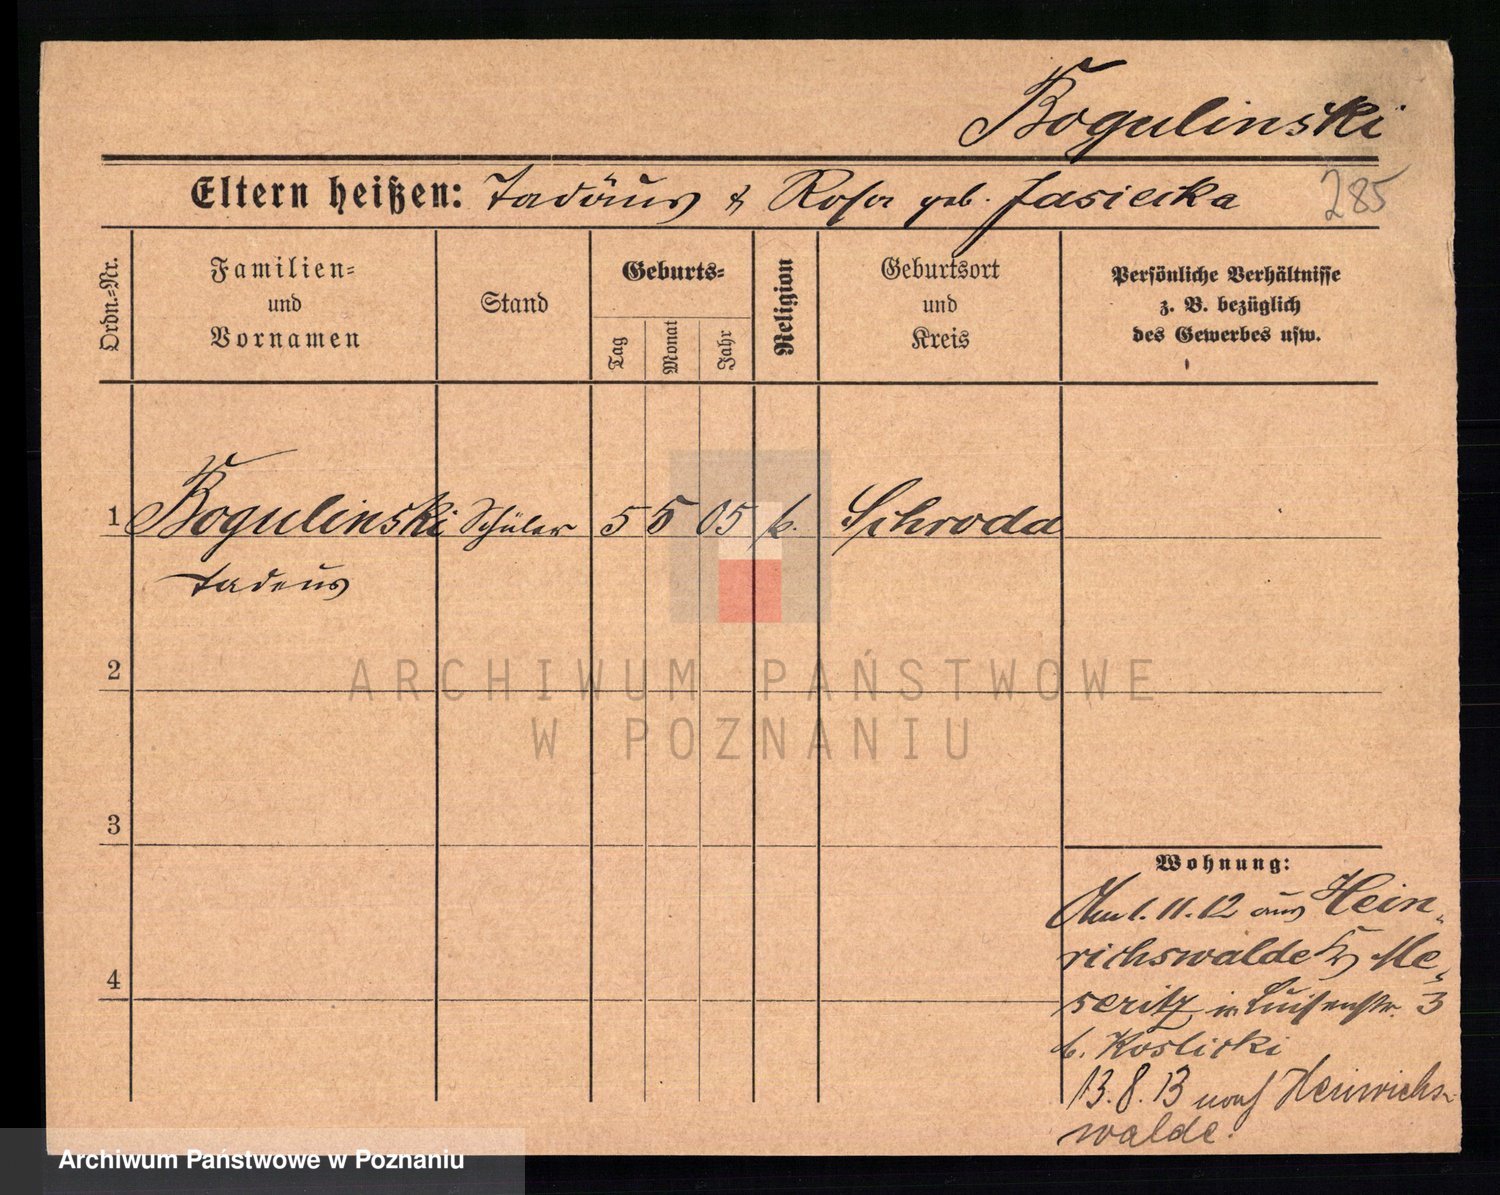 Bogulinski
Eltern heißen: Tadäus & Rosa geb. Jasiecka
285
Ordn.=Nr.
Familien=
und
Vornamen
Stand
Geburts=
Tag
Monat
Jahr
Religion
Geburtsort
und
Kreis
Persönliche Verhältnisse
z. B. bezüglich
des Gewerbes usw.
1 Bogulinski Schüler 5 5 05 k. Schroda
Tadeus
2
ARCHIWUM PAŃSTWOWE
W POZNANIU
3
Wohnung:
1.11.12 aus Hein-
richswalde Kr Me-
seritz in Luisenstr. 3
b. Koslicki
4
13.8.13 nach Heinrichs-
walde.
Archiwum Państwowe w Poznaniu